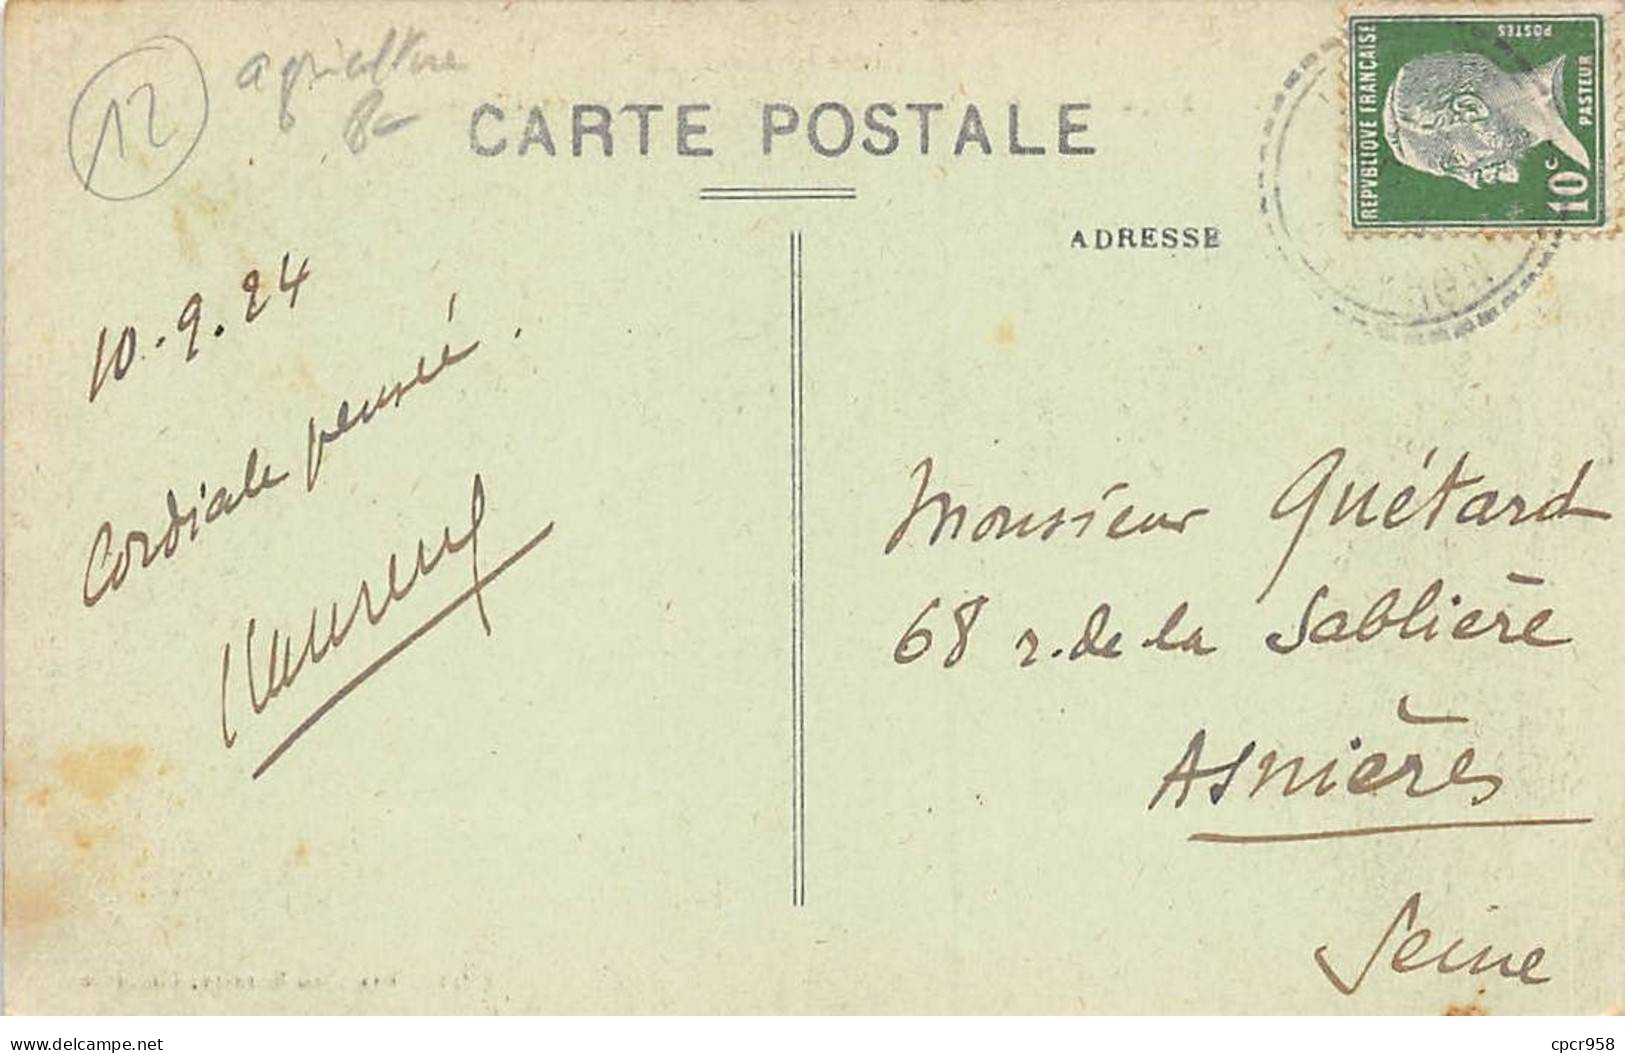 12
agriculture
8-
CARTE POSTALE
ADRESSE
REPVBLIQVE FRANÇAISE
POSTES
PASTEUR
10c
10.9.24
Cordiale pensée.
Monsieur Quétard
68 r. de la Sablière
Asnières
Seine
www.delcampe.net
cpcr958